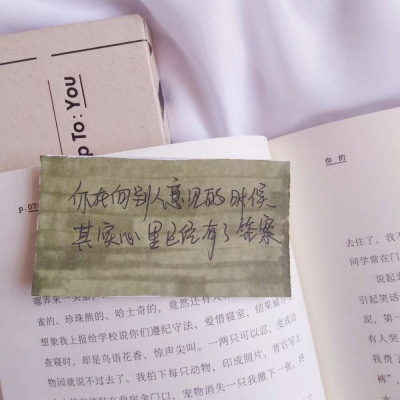 p To: You
你在问别人意见的时候
其实心里已经有了答案
雀的、珍珠熊的、哈士奇的,竟然还有
想象我上报给学校说你们遵纪守法、爱惜寝室,结果
查寝时,却是鸟语花香、惊声尖叫。一两只可以忍,变成动
物园就说不过去了。我拍下每只动物,印成照片,背后写上
宿舍门口,宠物消失一只我撤下一张,
你的
去住了。我
同学常在门
说起
引起笑话
泥,第一
有人哭
我费
裤”,